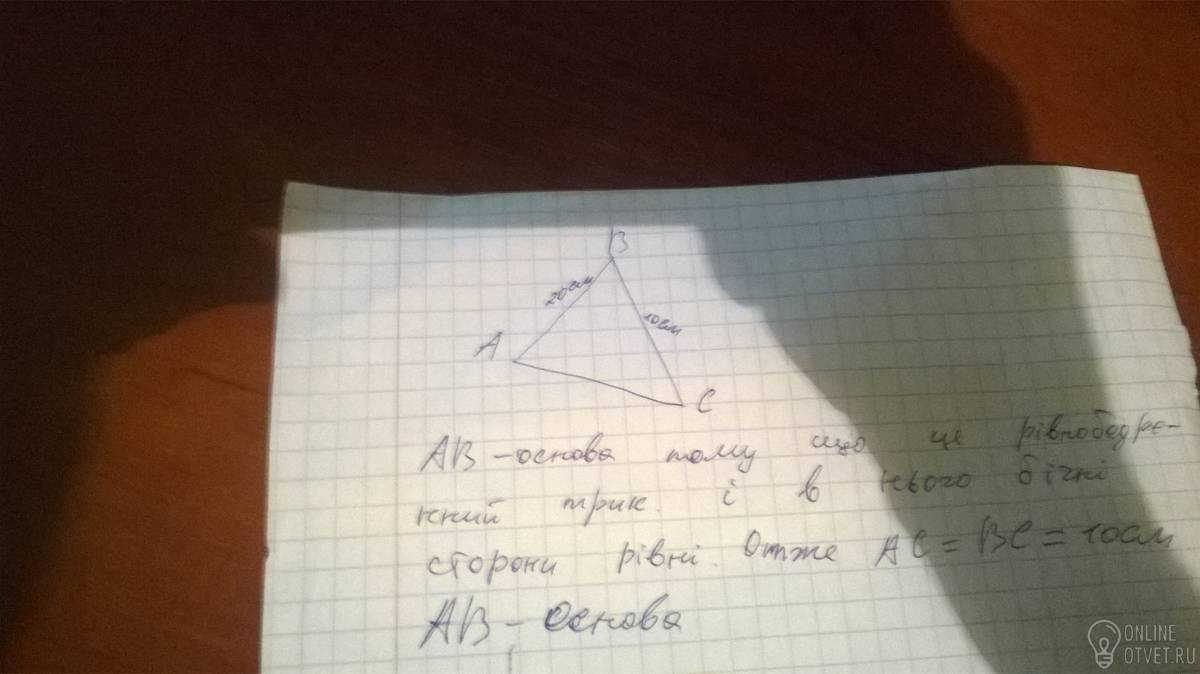 B
20см
10см
A
C
AB – основа тому що це рівнобедре-
нний трик. і в нього бічні
сторони рівні. Отже AC = BC = 10см
AB – Основа
ONLINE
OTVET.RU